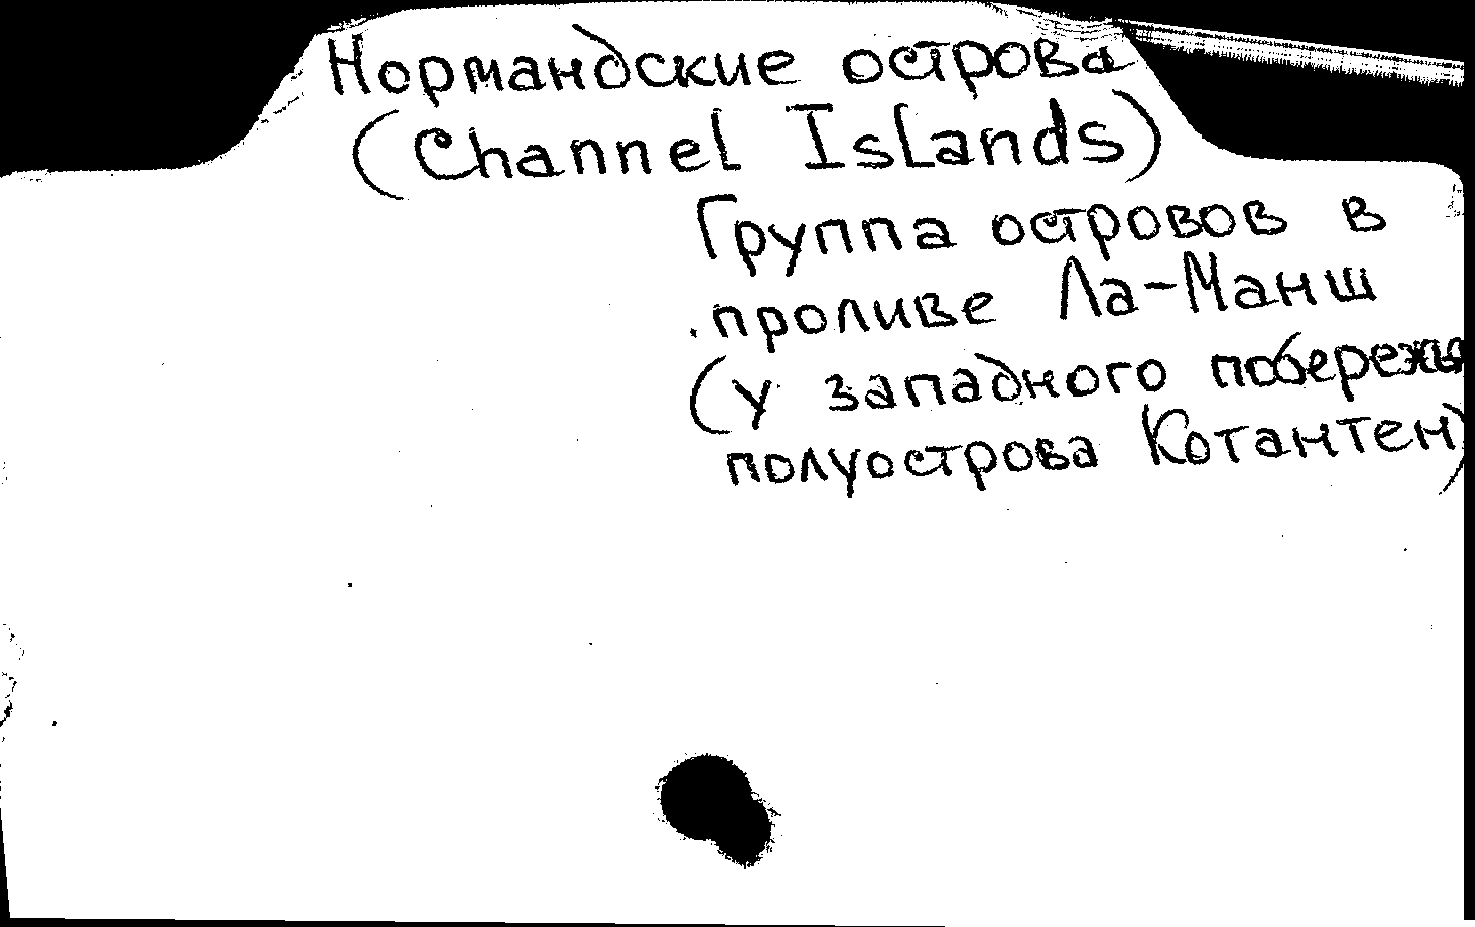 Нормандские острова
(Channel Islands)
Группа островов в
проливе Ла-Манш
(у западного
полуострова Котантен)